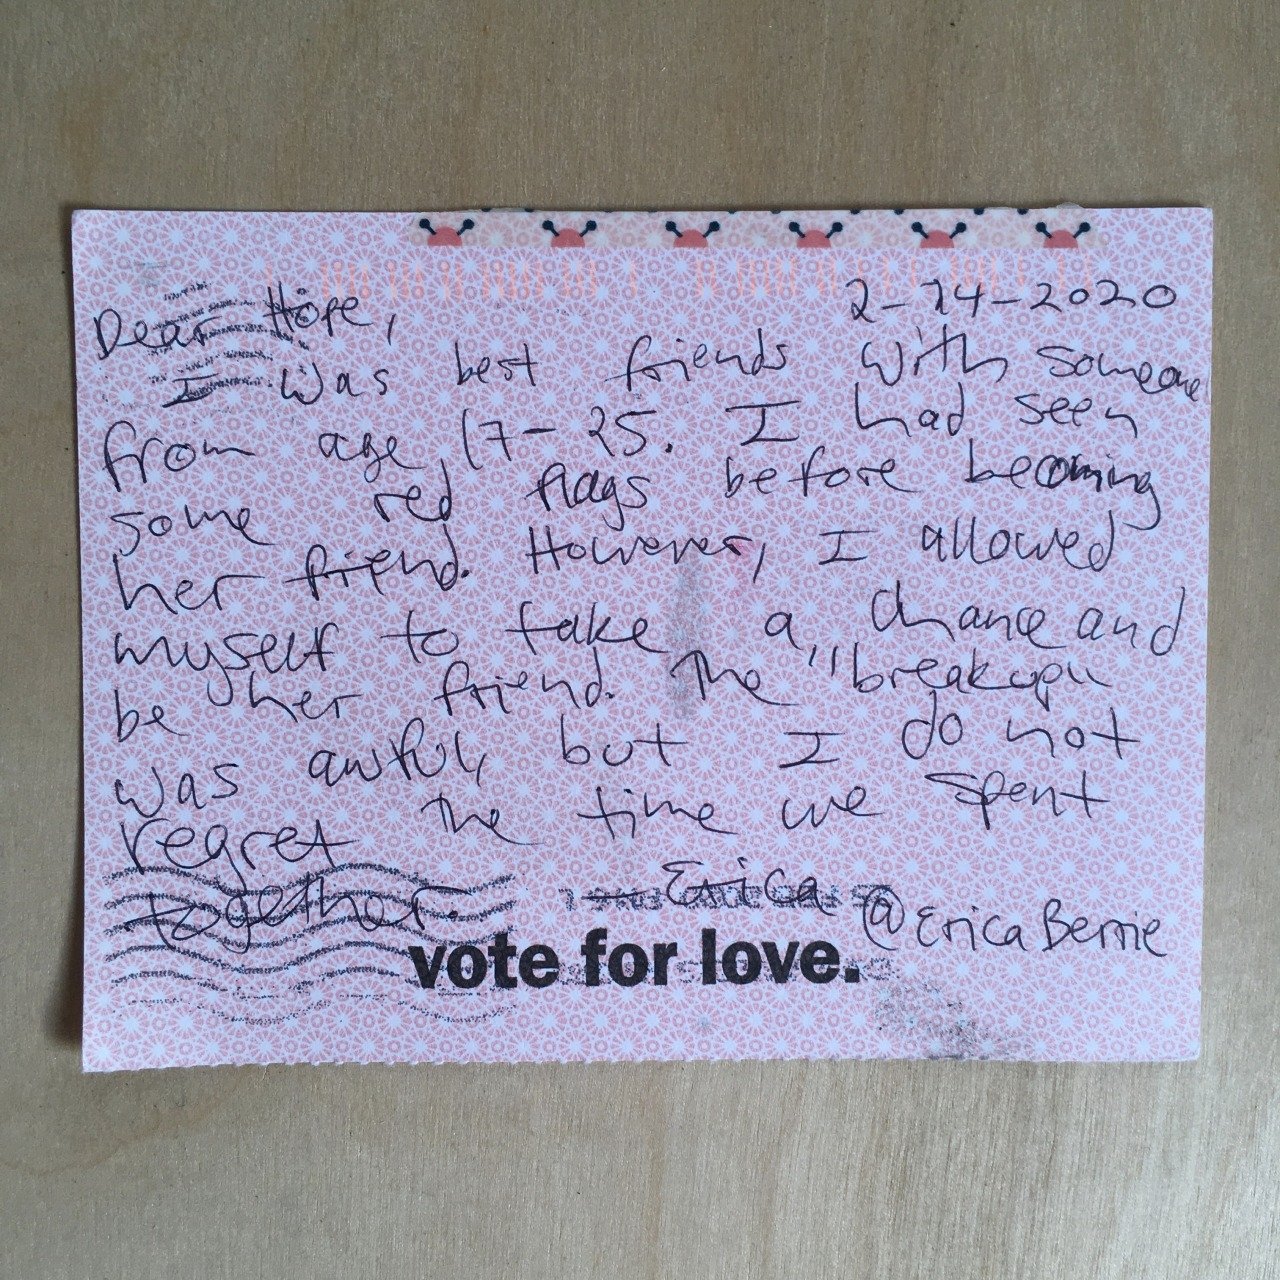 2-14-2020
Dear Hope,
I was best friends with someone
from age 17-25. I had seen
some red flags before becoming
her friend. However, I allowed
myself to take a chance and
be her friend. The "breakup"
was awful, but I do not
regret the time we spent
together. - Erica @EricaBerrie
vote for love.